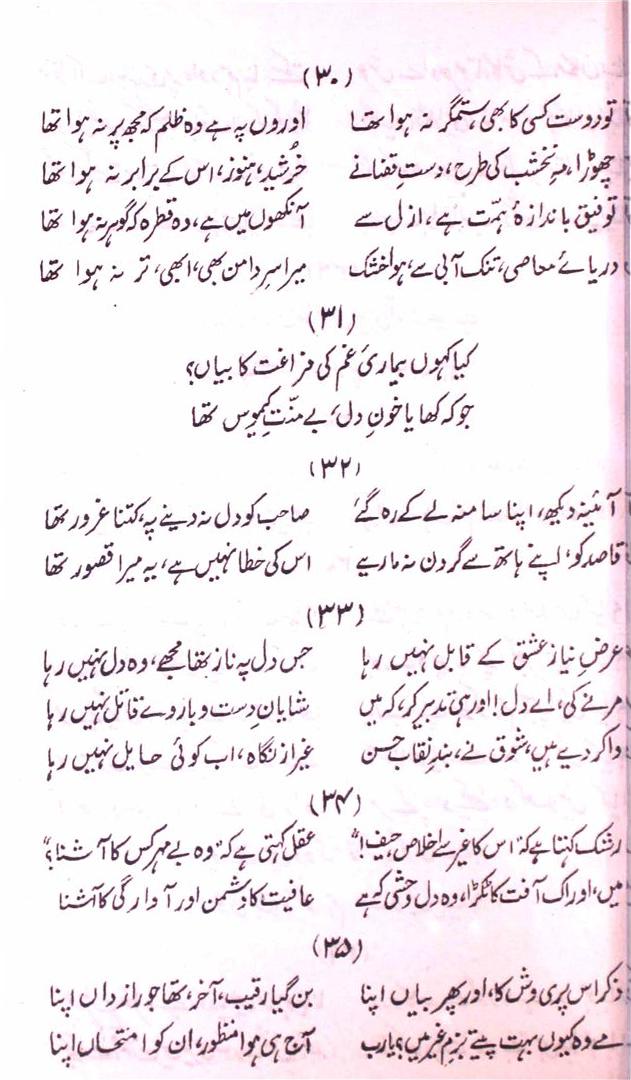 (۳۰)
تو دوست کسی کا بھی، ستمگر نہ ہوا تھا اوروں پہ ہے وہ ظلم کہ مجھ پر نہ ہوا تھا
چھوڑا، مہِ نخشب کی طرح، دستِ قضا نے خُرشید، ہنوز، اس کے برابر نہ ہوا تھا
توفیق باندازۂ ہمّت ہے، ازل سے آنکھوں میں ہے، وہ قطرہ کہ گوہر نہ ہوا تھا
دریائے معاصی، تنک آبی سے، ہوا خشک میرا سرِ دامن بھی، ابھی، تر نہ ہوا تھا
(۳۱)
کیا کہوں بیماریٔ غم کی فراغت کا بیاں؟
جو کہ کھایا خونِ دل، بے منّتِ کیموس تھا
(۳۲)
آئینہ دیکھ، اپنا سا منہ لے کے رہ گئے صاحب کو دل نہ دینے پہ، کتنا غرور تھا
قاصد کو، اپنے ہاتھ سے گردن نہ ماریے اس کی خطا نہیں ہے، یہ میرا قصور تھا
(۳۳)
عرضِ نیازِ عشق کے قابل نہیں رہا جس دل پہ ناز تھا مجھے، وہ دل نہیں رہا
مرنے کی، اے دل! اور ہی تدبیر کر، کہ میں شایانِ دست و بازوے قاتل نہیں رہا
وا کر دیے ہیں، شوق نے، بندِ نقابِ حسن غیر از نگاہ، اب کوئی حایل نہیں رہا
(۳۴)
رشک کہتا ہے کہ "اس کا غیر سے اخلاص حیف!" عقل کہتی ہے کہ "وہ بے مہر کس کا آشنا؟"
میں، اور اک آفت کا ٹکڑا، وہ دلِ وحشی کہ ہے عافیت کا دشمن اور آوارگی کا آشنا
(۳۵)
ذکر اس پری وش کا، اور پھر بیاں اپنا بن گیا رقیب، آخر، تھا جو رازداں اپنا
مے وہ کیوں بہت پیتے بزمِ غیر میں؟ یارب آج ہی ہوا منظور، ان کو امتحاں اپنا